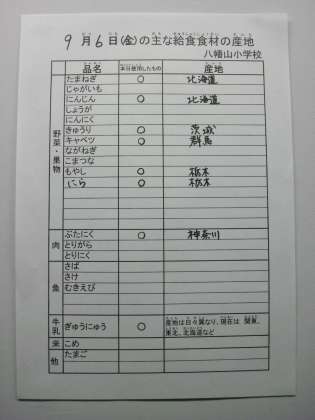 9月6日(金)の主な給食食材の産地
八幡山小学校
品名 本日使用したもの 産地
野菜・果物
たまねぎ ○ 北海道
じゃがいも
にんじん ○ 北海道
しょうが
にんにく
きゅうり ○ 茨城
キャベツ ○ 群馬
ながねぎ
こまつな
もやし ○ 栃木
にら ○ 栃木
肉
ぶたにく ○ 神奈川
とりがら
とりにく
魚
さば
さけ
むきえび
牛乳
ぎゅうにゅう ○ 産地は日々異なり、現在は 関東、
東北、北海道など
米 こめ
他 たまご